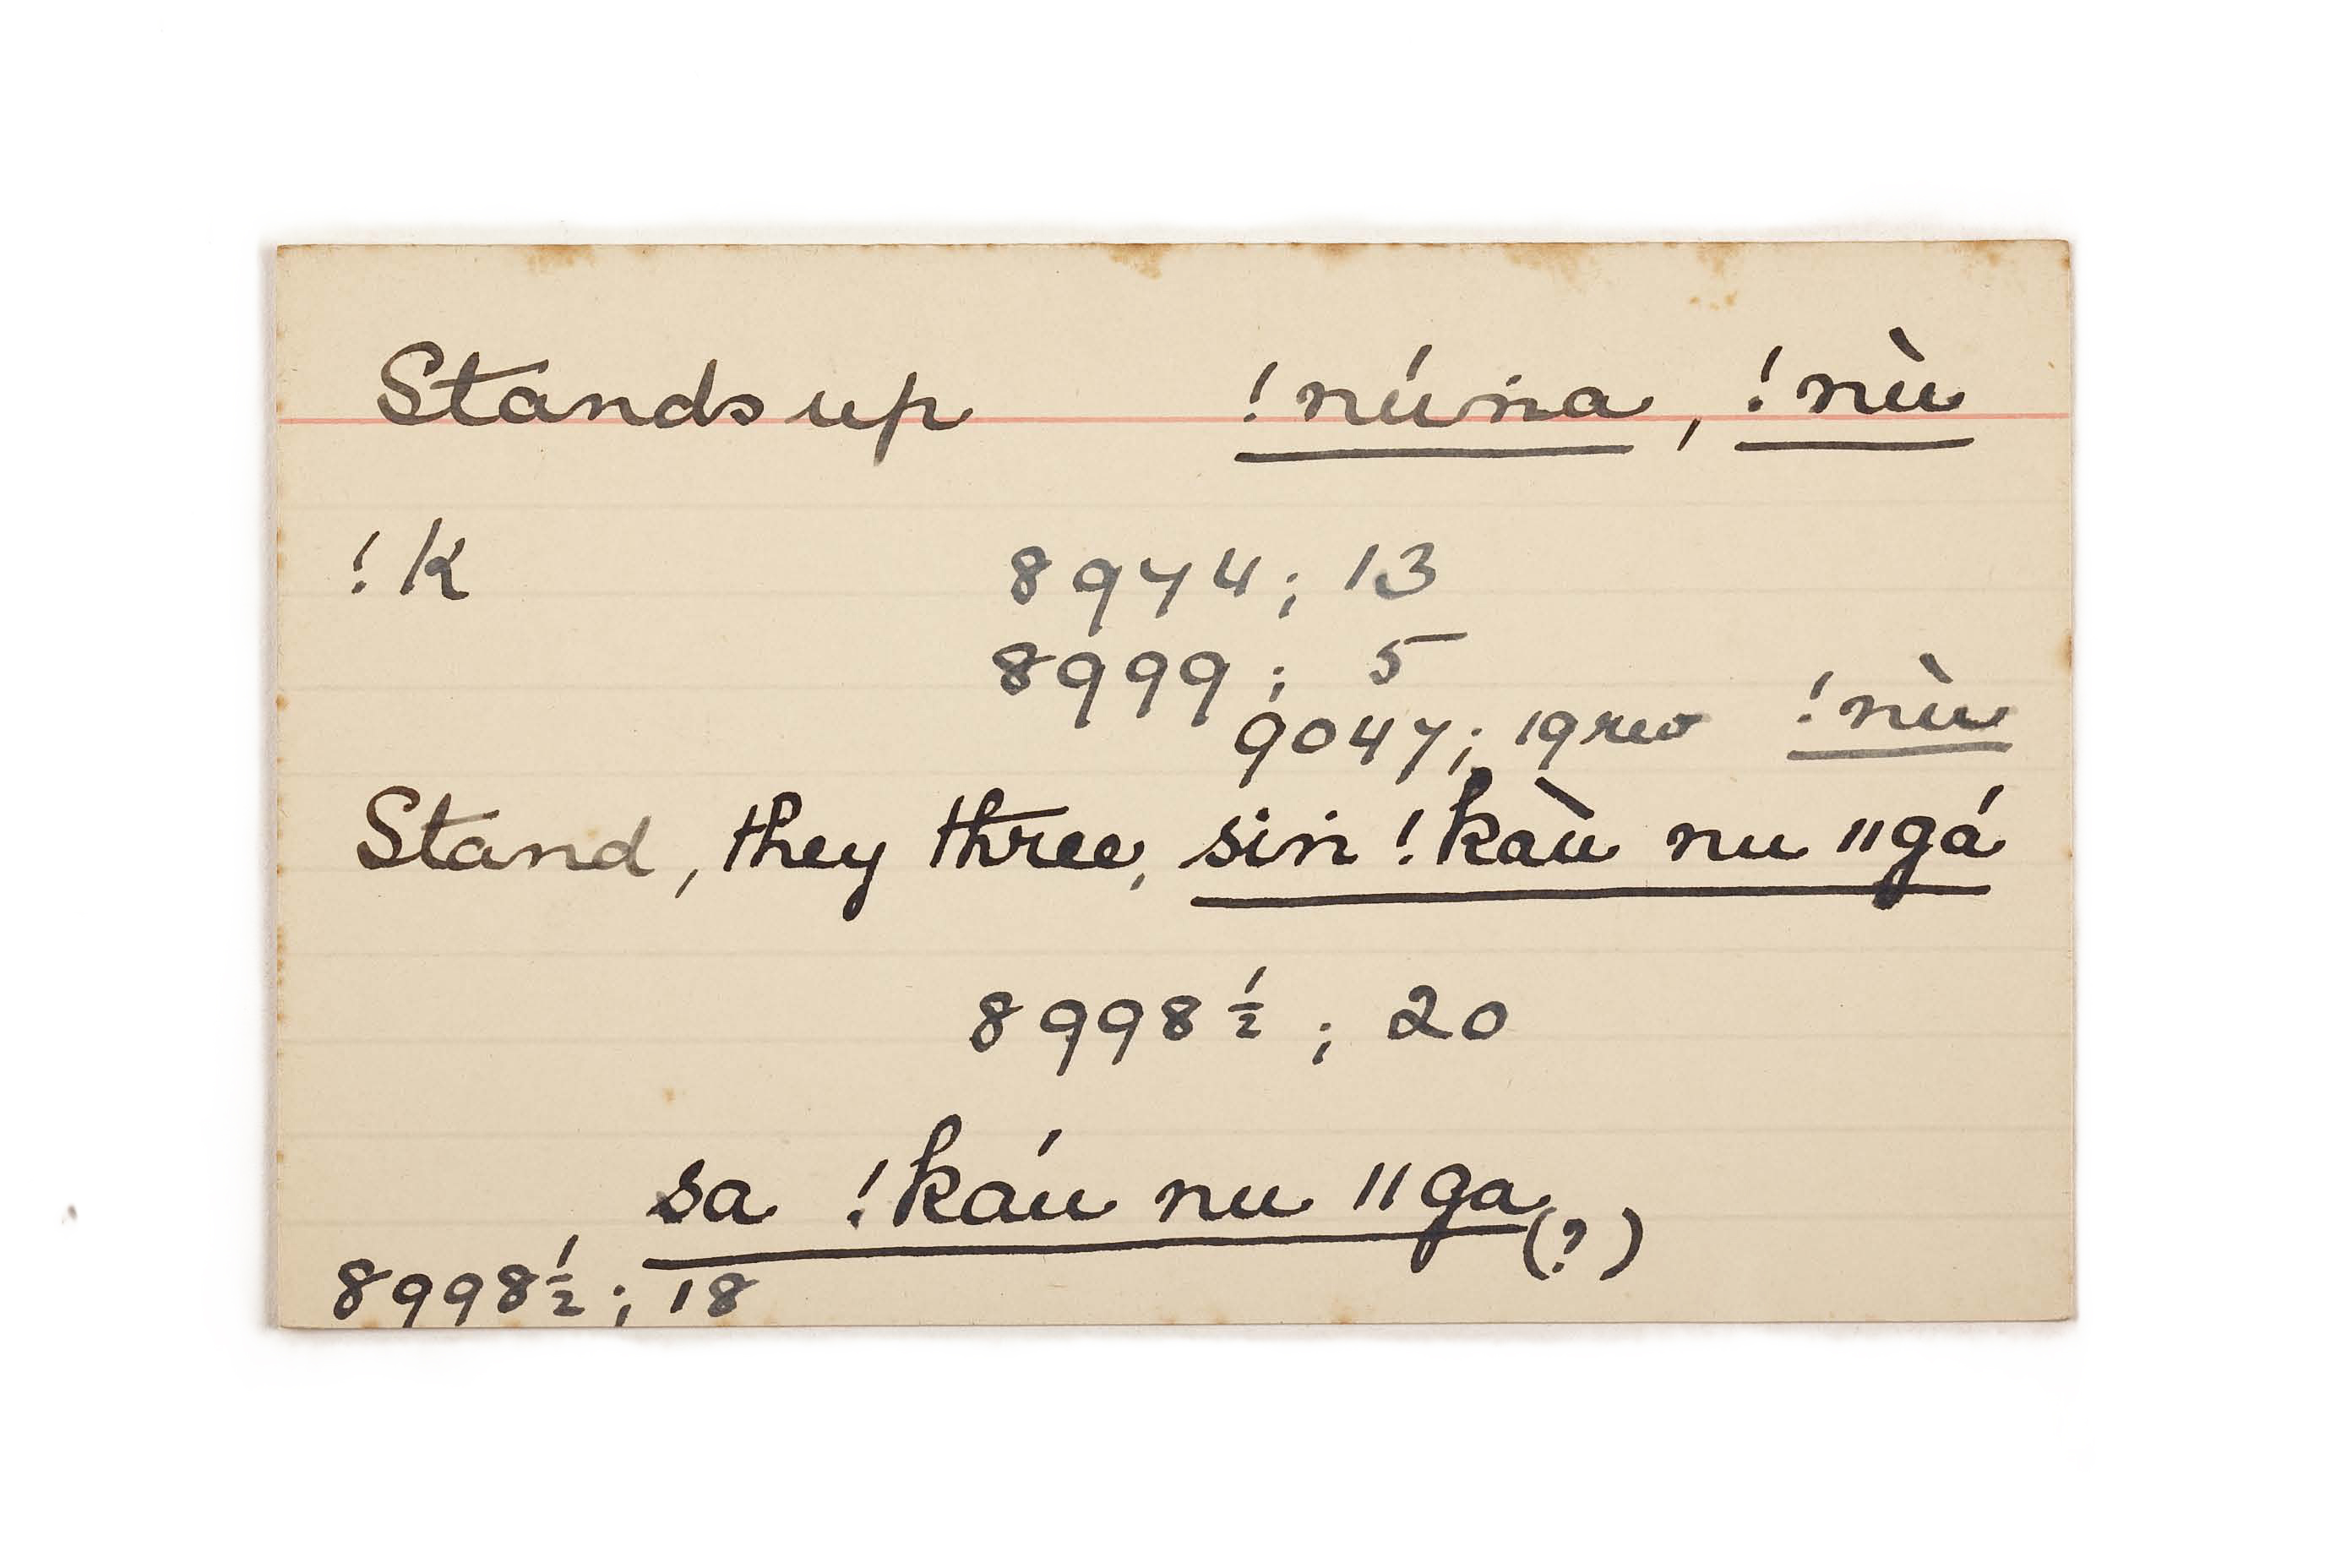 Stands up !núṅa, !nù
!K 8974; 13
8999; 5
9047; 19rev !nù
Stand, they three, siṅ !kaù nu ǁgá
8998½; 20
sa !kaú nu ǁga (?)
8998½; 18